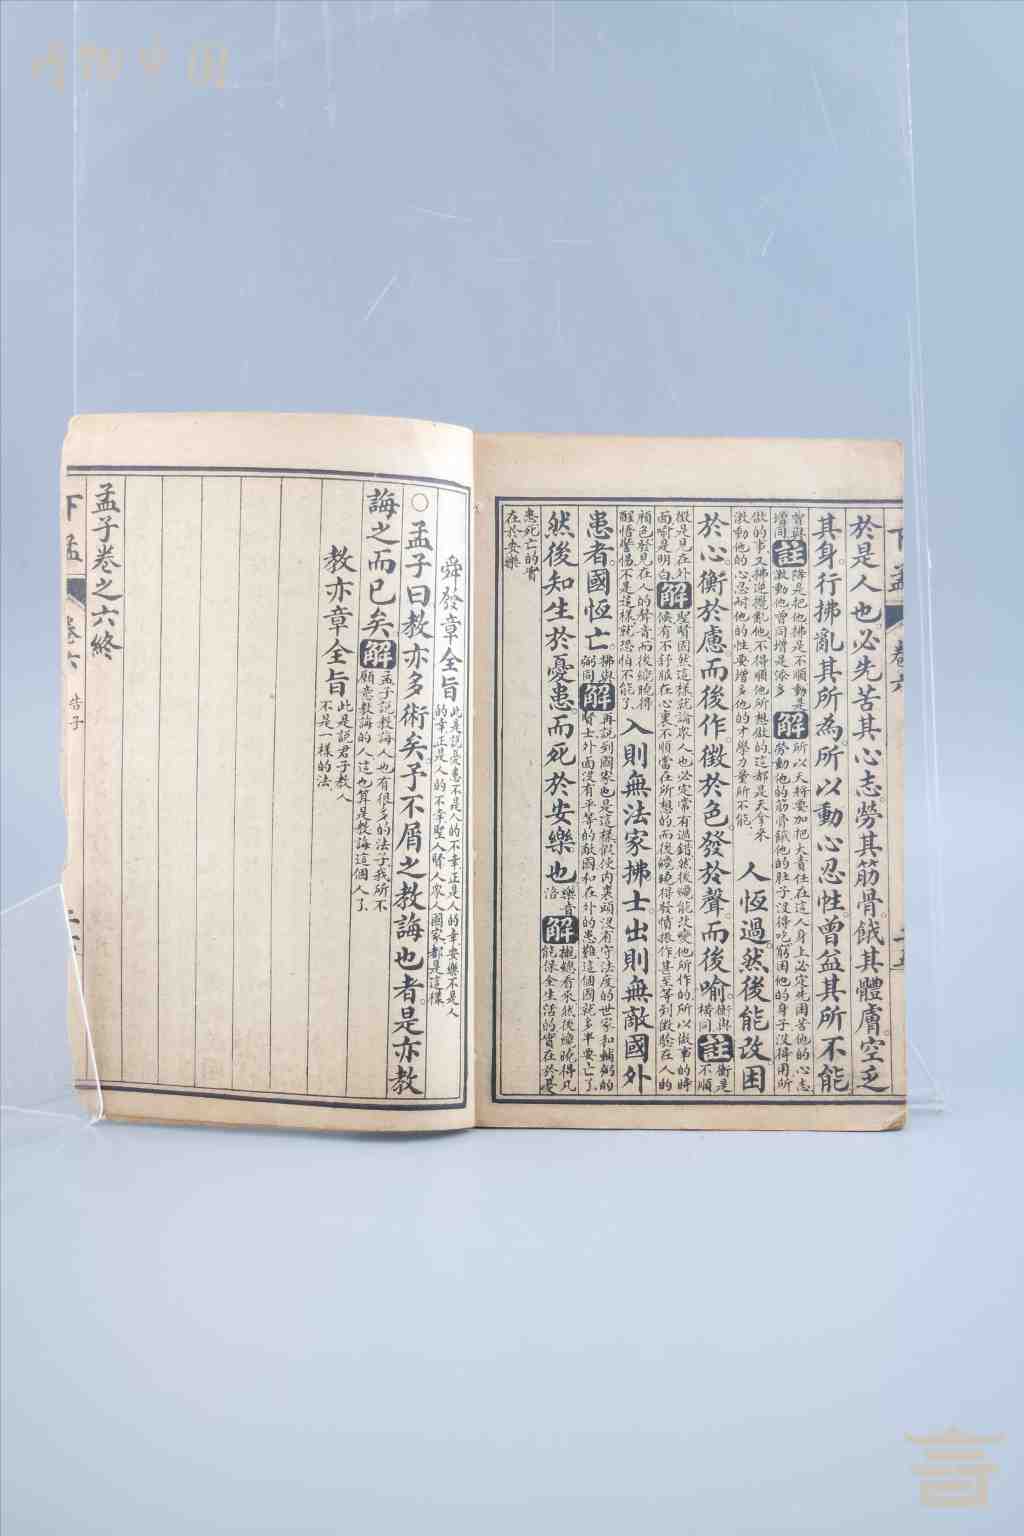 下孟 卷六
於是人也。必先苦其心志。勞其筋骨。餓其體膚。空乏
其身。行拂亂其所為。所以動心忍性。曾益其所不能
曾與
增同
註
降是把他拂是不順動是
激動他曾同增是添多
解
所以天將要加把大責任在這人身上必定先困苦他的心志
勞動他的筋骨餓他的肚子沒得吃窮困他的身子沒得用所
做的事又拂逆攪亂他不得順他所想做的這都是天拿來
激動他的心忍耐他的性要增多他的才學力量所不能
人恆過。然後能改。困
於心。衡於慮。而後作。徵於色。發於聲。而後喻。
衡與
橫同
註
衡是
不順
徵是見在外
面喻是明白
解
聖賢固然這樣就論眾人也必定常有過錯然後纔能改變他所作的所以做事的時
候有不舒服在心裏不順當在所想的而後纔曉得發憤振作甚至等到徵驗在人的
顏色發見在人的聲音而後纔曉得
醒悟警惕不是這樣就恐怕不能了
入則無法家拂士。出則無敵國外
患者。國恆亡。
拂與
弼同
解
再說到國家也是這樣假使內裏頭沒有守法度的世家和輔弼的
賢士外面沒有平等的敵國和在外的患難這個國就多半要亡了
然後知生於憂患而死於安樂也
樂音
洛
解
概總看來然後纔曉得凡
能保全生活的實在於憂
患死亡的實
在於安樂
舜發章全旨
此是說憂患不是人的不幸正是人的幸安樂不是人
的幸正是人的不幸聖人賢人眾人國家都是這樣
○孟子曰教亦多術矣。予不屑之教誨也者。是亦教
誨之而已矣
解
孟子說教誨人也有很多的法子我所不
願意教誨的人這也算是教誨這個人了
教亦章全旨
此是說君子教人
不是一樣的法
孟子卷之六終
下孟 卷六 告子